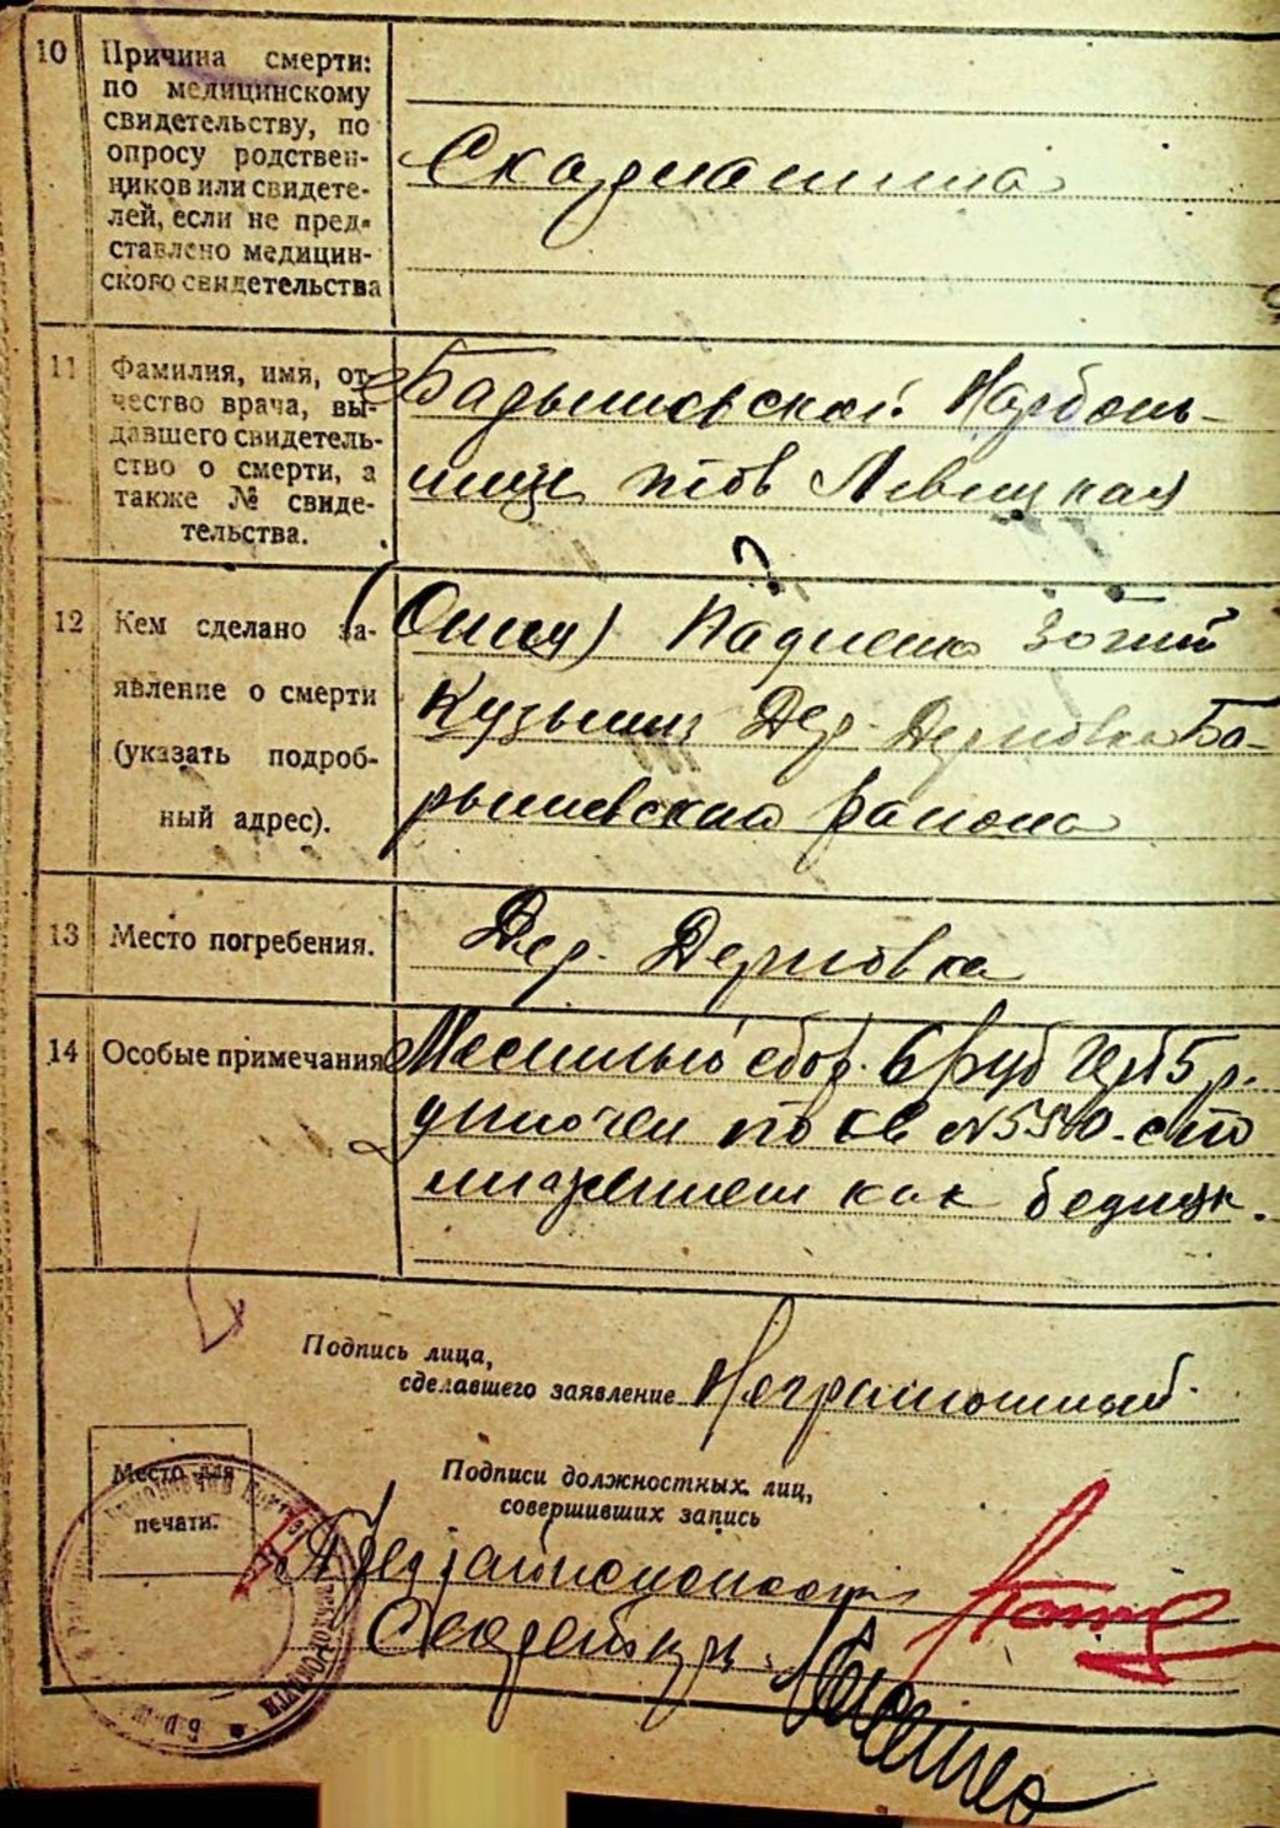 10 Причина смерти:
по медицинскому
свидетельству, по
опросу родствен-
ников или свидете-
лей, если не пред-
ставлено медицин-
ского свидетельства
Скарлатина
11 Фамилия, имя, от-
чество врача, вы-
давшего свидетель-
ство о смерти, а
также № свиде-
тельства.
Барышевской Нарболь-
ницы Левицкая
?
12 Кем сделано за-
явление о смерти
(указать подроб-
ный адрес).
(Отец)
Кузьмич Дер. Дерновка Ба-
рышевский района
13 Место погребения.
Дер. Дерновка
14 Особые примечания
Местный сбор 6 руб 5 р.
уплочен по кв №
как бедняк.
Подпись лица,
сделавшего заявление Неграмотный
Подписи должностных лиц,
совершивших запись
Место для
печати.